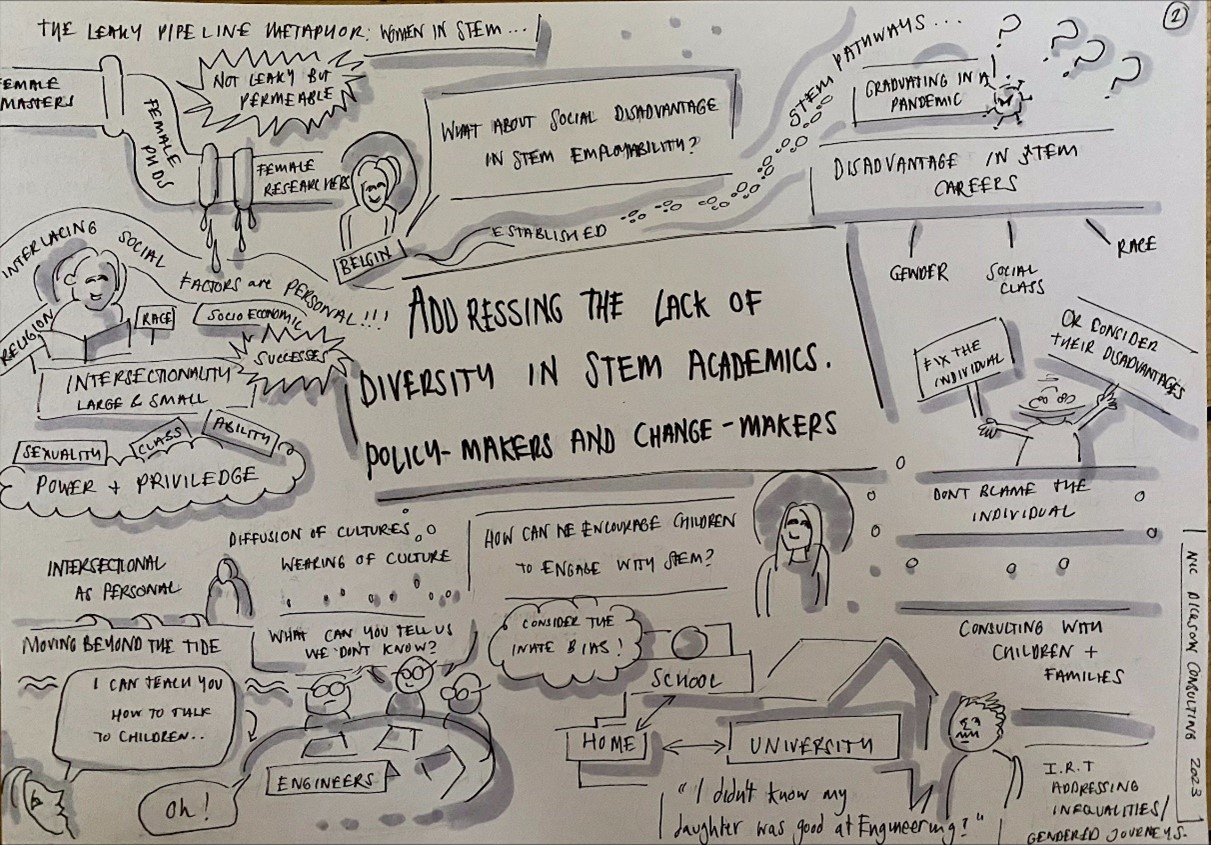 THE LEAKY PIPELINE METAPHOR: WOMEN IN STEM...
2
FEMALE
MASTERS
FEMALE
PHDS
NOT LEAKY BUT
PERMEABLE
FEMALE
RESEARCHERS
BELGIN
WHAT ABOUT SOCIAL DISADVANTAGE
IN STEM EMPLOYABILITY?
ESTABLISHED
STEM PATHWAYS...
GRADUATING IN A
PANDEMIC
? ? ? ?
DISADVANTAGE IN STEM
CAREERS
GENDER
SOCIAL
CLASS
RACE
INTERLACING SOCIAL
FACTORS are PERSONAL!!!
RELIGION
RACE
SOCIO ECONOMIC
SUCCESSES
INTERSECTIONALITY
LARGE & SMALL
SEXUALITY
CLASS
ABILITY
POWER + PRIVILEDGE
ADDRESSING THE LACK OF
DIVERSITY IN STEM ACADEMICS.
POLICY-MAKERS AND CHANGE-MAKERS
FIX THE
INDIVIDUAL
OR CONSIDER
THEIR DISADVANTAGES
DONT BLAME THE
INDIVIDUAL
CONSULTING WITH
CHILDREN +
FAMILIES
DIFFUSION OF CULTURES
WEARING OF CULTURE
INTERSECTIONAL
AS PERSONAL
MOVING BEYOND THE TIDE
I CAN TEACH YOU
HOW TO TALK
TO CHILDREN..
Oh!
WHAT CAN YOU TELL US
WE DON'T KNOW?
ENGINEERS
HOW CAN WE ENCOURAGE CHILDREN
TO ENGAGE WITH STEM?
CONSIDER THE
INATE BIAS!
SCHOOL
HOME
UNIVERSITY
"I didn't know my
daughter was good at Engineering!"
I.R.T
ADDRESSING
INEQUALITIES/
GENDERED JOURNEYS.
NIC DICKSON CONSULTING 2023